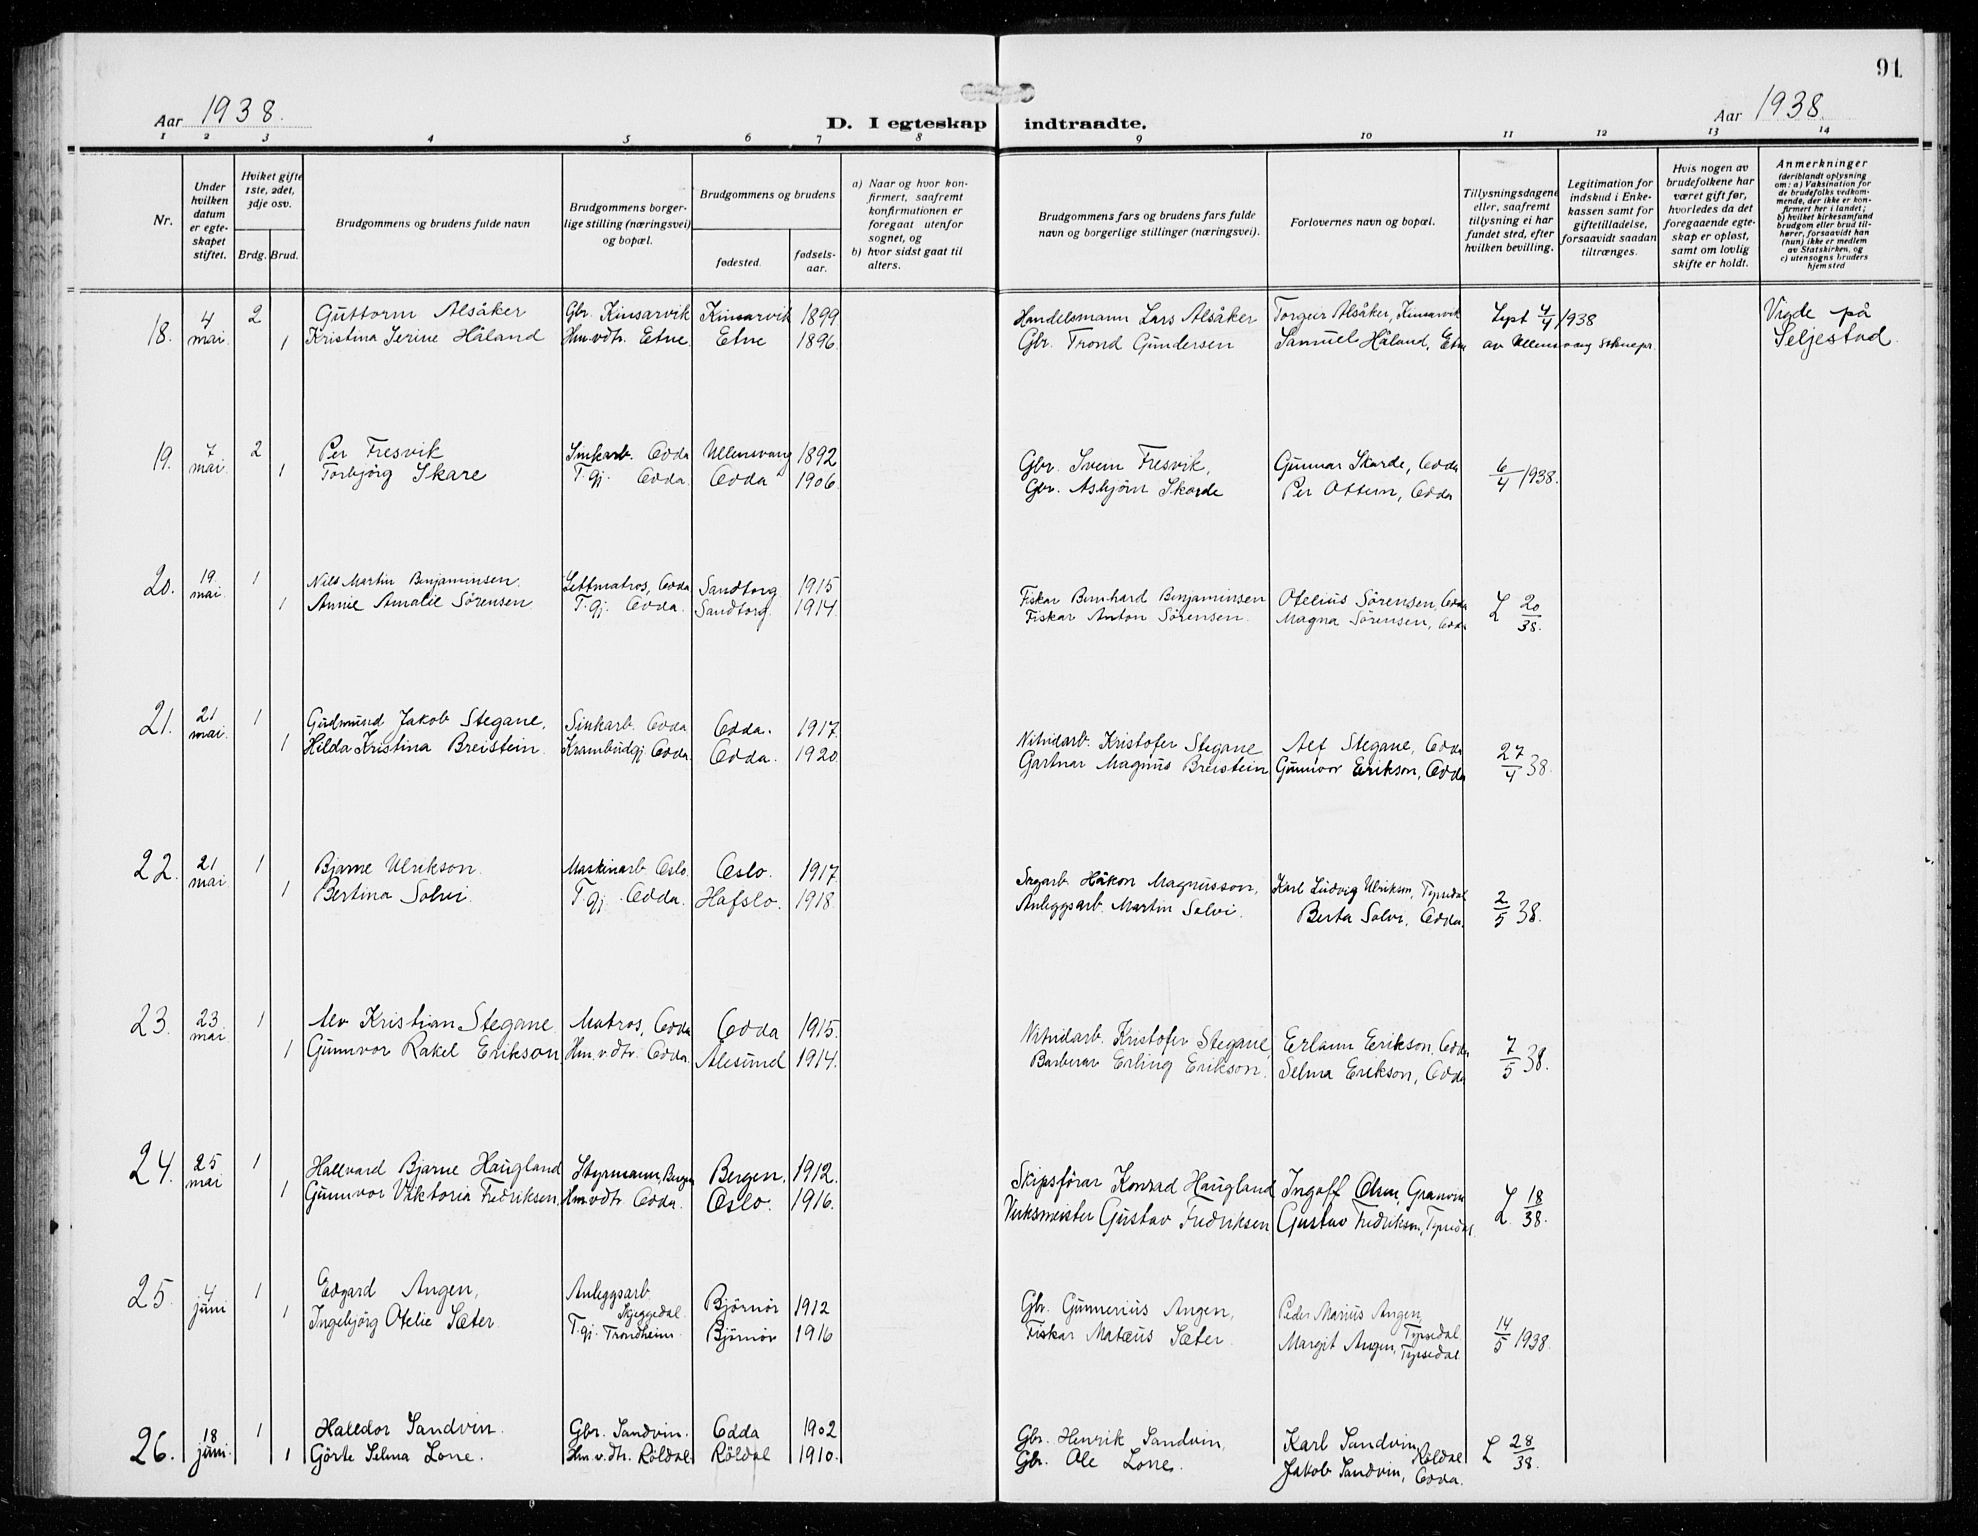 91
Aar 1938.
D. I egteskap indtraadte.
Aar 1938.
1 2 3 4 5 6 7 8 9 10 11 12 13 14
Nr.
Under hvilken datum er egte-skapet stiftet.
Hvilket gifte 1ste, 2det, 3dje osv.
Brdg. Brud.
Brudgommens og brudens fulde navn
Brudgommens borger-lige stilling (næringsvei) og bopæl.
Brudgommens og brudens
fødested.
fødsels-aar.
a) Naar og hvor kon-firmert, saafremt konfirmationen er foregaat utenfor sognet, og
b) hvor sidst gaat til alters.
Brudgommens fars og brudens fars fulde navn og borgerlige stillinger (næringsvei).
Forlovernes navn og bopæl.
Tillysningsdagene eller, saafremt tillysning ei har fundet sted, efter hvilken bevilling.
Legitimation for indskud i Enke-kassen samt for giftetilladelse, forsaavidt saadan tiltrænges.
Hvis nogen av brudefolkene har været gift før, hvorledes da det foregaaende egte-skap er opløst, samt om lovlig skifte er holdt.
Anmerkninger
(deriblandt oplysning om: a) Vaksination for de brudefolks vedkom-mende, der ikke er kon-firmert her i landet; b) hvilket kirkesamfund brudgom eller brud til-hører, forsaavidt han (hun) ikke er medlem av Statskirken, og c) utensogns bruders hjemsted
18. 4 mai 2 Guttorm Alsåker Gbr. Kinsarvik Kinsarvik 1899 Handelsmann Lars Alsåker Torgeir Alsåker, Kinsarvik Lyst 4/4 1938 Vigde på
1 Kristina Serine Håland Hm.vdtr. Etne Etne 1896. Gbr. Trond Gundersen Samuel Håland, Etne av Ullensvang Soknepr. Seljestad.
19. 7 mai. 2 Per Fresvik Sinkarb. Odda Ullensvang 1892 Gbr. Svein Fresvik, Gunnar Skarde, Odda 6/4 1938.
1 Torbjørg Skare T. gj. Odda. Odda 1906. Gbr. Asbjörn Skarde Per Ottem, Odda
20. 19. mai. 1 Nils Martin Benjaminsen. Lettmatros, Odda Sandtorg 1915 Fiskar Bernhard Benjaminsen Otelius Sörensen, Odda L 20/38.
1 Annie Amalie Sörensen T. gj. Odda. Sandtorg. 1914. Fiskar Anton Sörensen. Magna Sörensen, Odda
21. 21 mai. 1 Gudmund Jakob Stegane. Sinkarb. Odda Odda. 1917. Nitridarb. Kristofer Stegane Alf Stegane, Odda 27/4 38.
1 Hilda Kristina Breistein. Krambudgj. Odda. Odda. 1920. Gartnar Magnus Breistein Gunnvor Erikson, Odda
22. 21 mai 1 Bjarne Ulrikson. Maskinarb. Oslo. Oslo. 1917. Sagarb. Håkon Magnusson, Karl Ludvig Ulrikson, Tyssedal 2/5 38.
1 Bertina Solvi. T. gj. Odda. Hafslo. 1918. Anleggsarb. Martin Solvi. Berta Solvi, Odda.
23. 23. mai. 1 Alv Kristian Stegane. Matros, Odda Odda 1915. Nitridarb. Kristofer Stegane, Erlann Erikson, Odda 7/5 38.
1 Gunnvor Rakel Erikson Hm.v.dtr. Odda. Ålesund 1914. Barberar Erling Erikson. Selma Erikson, Odda
24. 25 mai 1 Hallvard Bjarne Haugland Styrmann, Bergen Bergen. 1912. Skipsförar Konrad Haugland Ingolf Olsen, Granvin L 18/38.
1 Gunnvor Viktoria Fredriksen. Hm.vdtr. Odda. Oslo. 1916. Verksmeister Gustav Fredriksen Gustav Fredriksen, Tyssedal.
25. 4 juni 1 Edgard Angen, Anleggsarb. Skjeggedal. Björnör 1912 Gbr. Gunnerius Angen, Peder Marius Angen, Tyssedal. 14/5 1938.
1 Ingebjörg Otelie Sæter. T. gj. Trondheim. Björnör 1916 Fiskar Matæus Sæter. Margit Angen, Tyssedal
26. 18 juni. 1 Halldor Sandvin. Gbr. Sandvin. Odda 1902 Gbr. Henrik Sandvin, Karl Sandvin, Röldal L 28/38.
1 Görte Selma Lone. Hm.v.dtr. Röldal Röldal 1910. Gbr. Ole Lone. Jakob Sandvin, Odda.